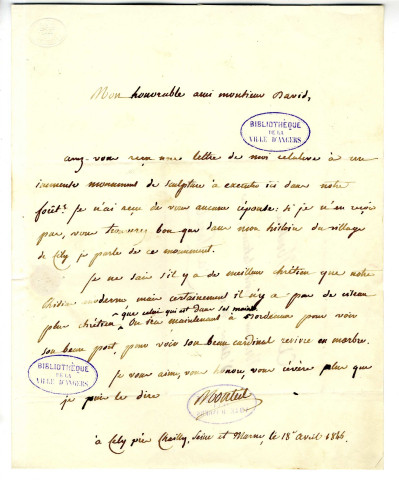 Mon honorable ami monsieur David,
BIBLIOTHÈQUE
DE LA
VILLE D'ANGERS
avez-vous reçu une lettre de moi relative à un
immense monument de sculpture à executer ici dans notre
forêt? je n'ai reçu de vous aucune réponse: si je n'en reçois
pas, vous trouverez bon que dans mon histoire du village
de Cely je parle de ce monument.
Je ne sais s'il y a de meilleur chrétien que notre
moderne mais certainement il n'y a pas de ciseau
que celui qui est dans ses mains.
plus chrétien On ira maintenant à Bordeaux pour voir
son beau port, pour voir son beau cardinal revivre en marbre.
BIBLIOTHÈQUE
DE LA
VILLE D'ANGERS
Je vous aime, vous honore, vous révère plus que
je puis le dire
Monteil
à Cely près Chailly, Seine et Marne, le 18 avril 1846.